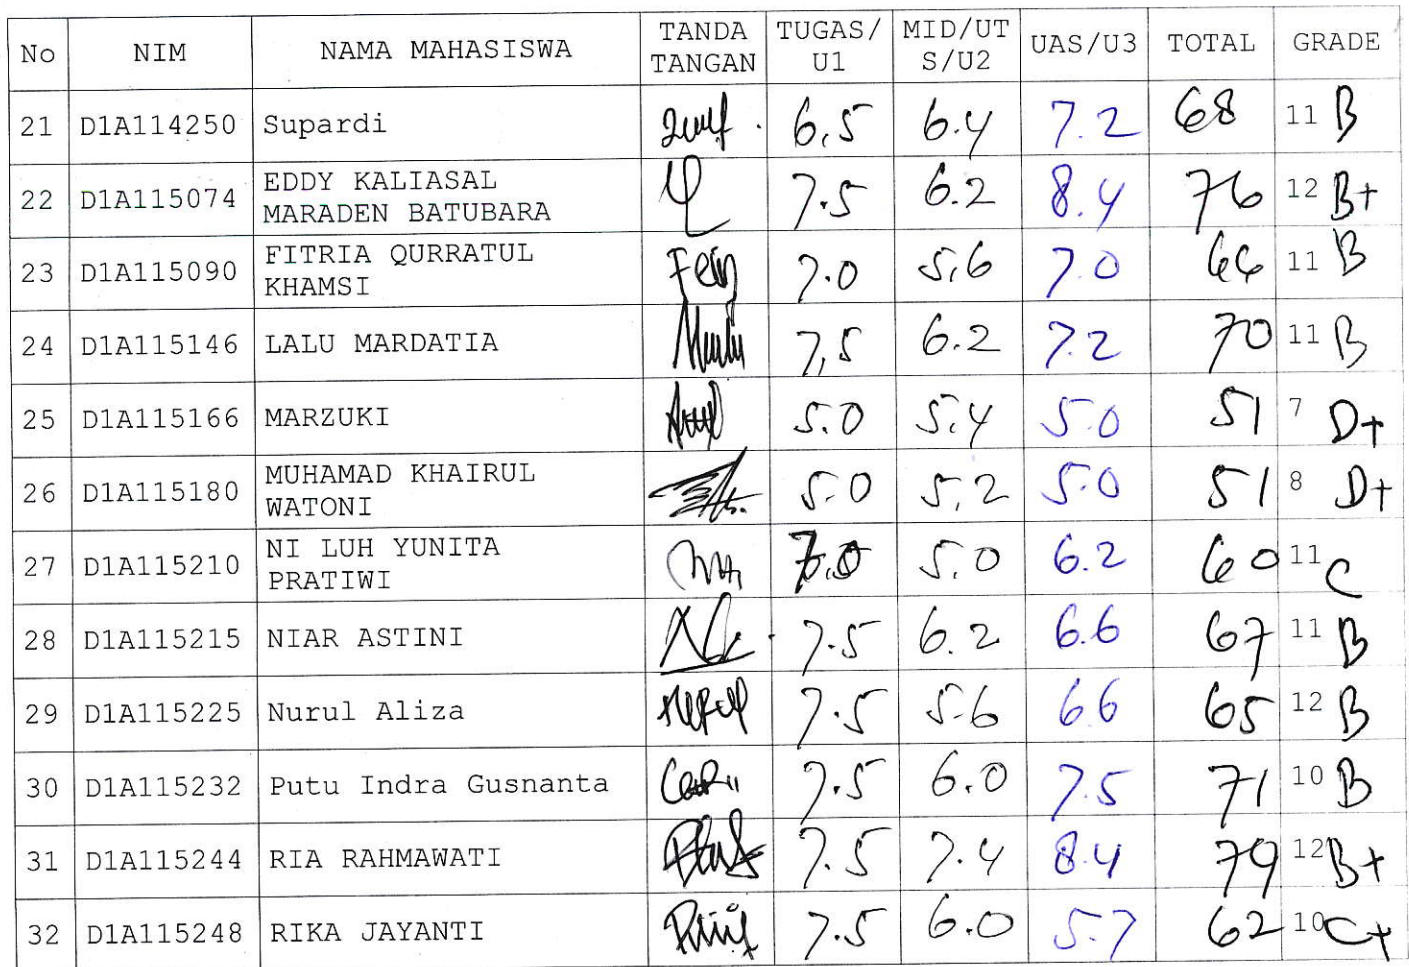 No NIM NAMA MAHASISWA TANDA TANGAN TUGAS/U1 MID/UTS/U2 UAS/U3 TOTAL GRADE
21 D1A114250 Supardi 6,5 6.4 7.2 68 11 B
22 D1A115074 EDDY KALIASAL 7.5 6.2 8.4 76 12 B+
MARADEN BATUBARA
23 D1A115090 FITRIA QURRATUL 7.0 5,6 7.0 66 11 B
KHAMSI
24 D1A115146 LALU MARDATIA 7,5 6.2 7.2 70 11 B
25 D1A115166 MARZUKI 5.0 5.4 5.0 51 7 D+
26 D1A115180 MUHAMAD KHAIRUL 5.0 5,2 5.0 51 8 D+
WATONI
27 D1A115210 NI LUH YUNITA 7.0 5.0 6.2 60 11 C
PRATIWI
28 D1A115215 NIAR ASTINI 7.5 6.2 6.6 67 11 B
29 D1A115225 Nurul Aliza 7.5 5.6 6.6 65 12 B
30 D1A115232 Putu Indra Gusnanta 7.5 6.0 7.5 71 10 B
31 D1A115244 RIA RAHMAWATI 7.5 7.4 8.4 79 12 B+
32 D1A115248 RIKA JAYANTI 7.5 6.0 5.7 62 10 C+